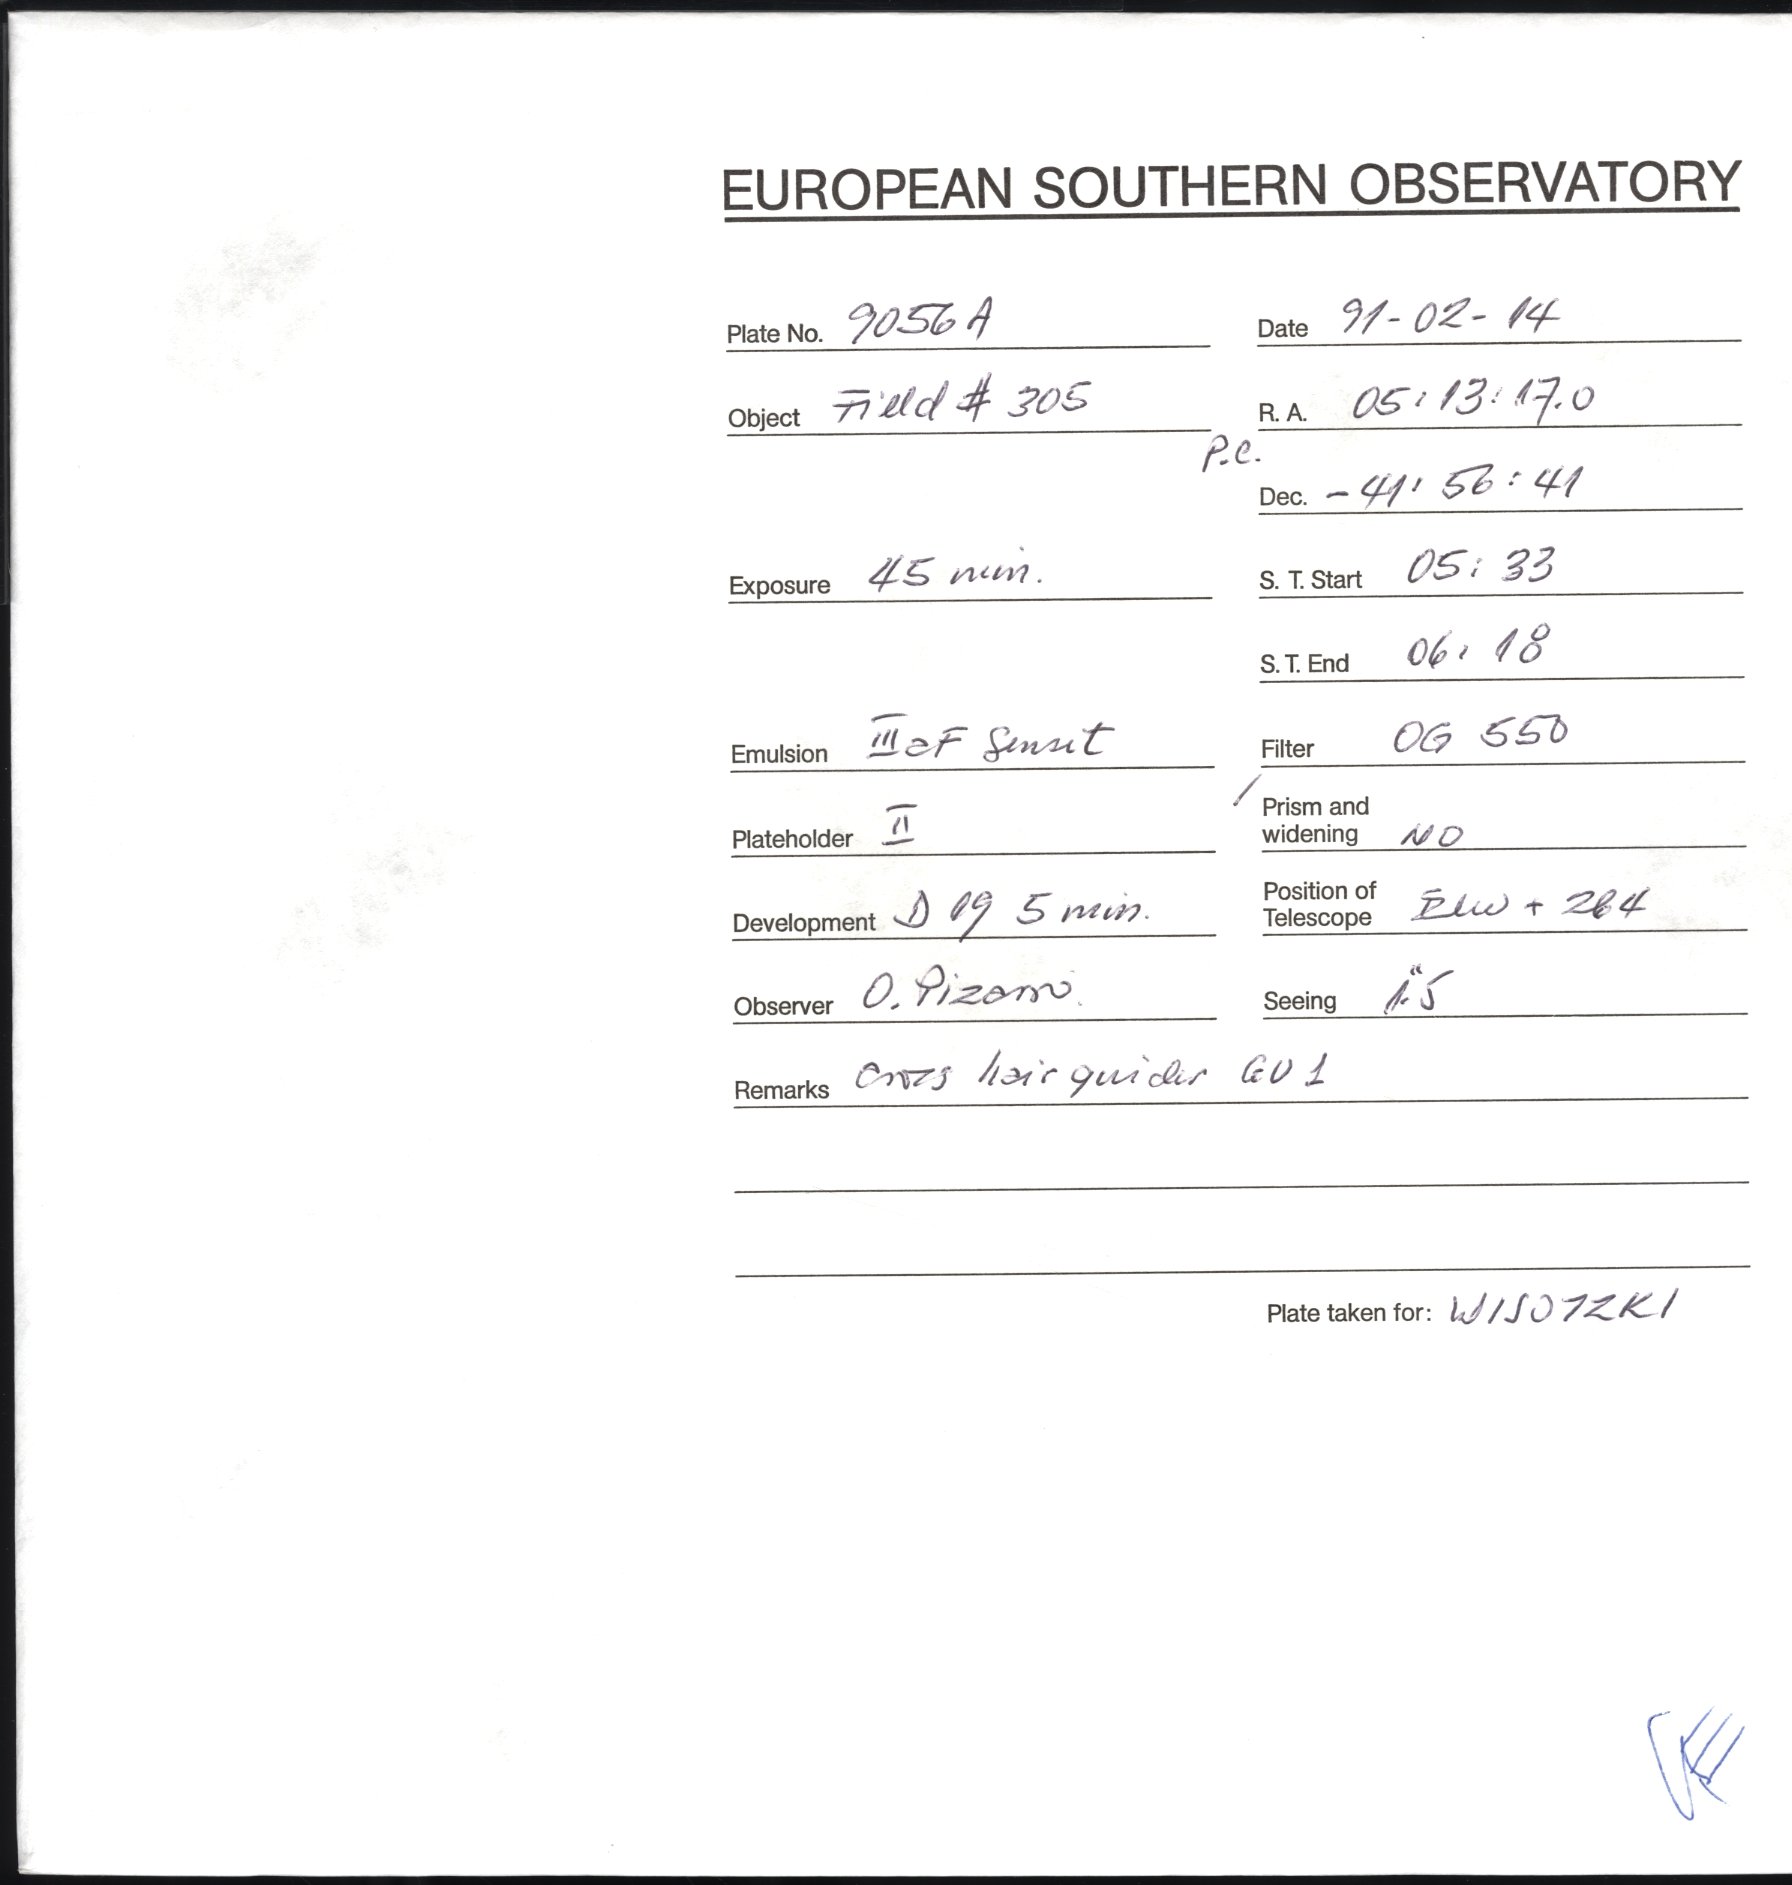 EUROPEAN SOUTHERN OBSERVATORY
Plate No. 9056A Date 91-02-14
Object Field # 305 R. A. 05:13:17.0
P.C.
Dec. -41:56:41
Exposure 45 min. S. T. Start 05:33
S. T. End 06:18
Emulsion III aF Sensit Filter OG 550
Plateholder II Prism and widening NO
Development D 19 5 min. Position of Telescope + 264
Observer O. Pizarro. Seeing 1."5
Remarks Cross hair guider GU1
Plate taken for: WISOTZKI